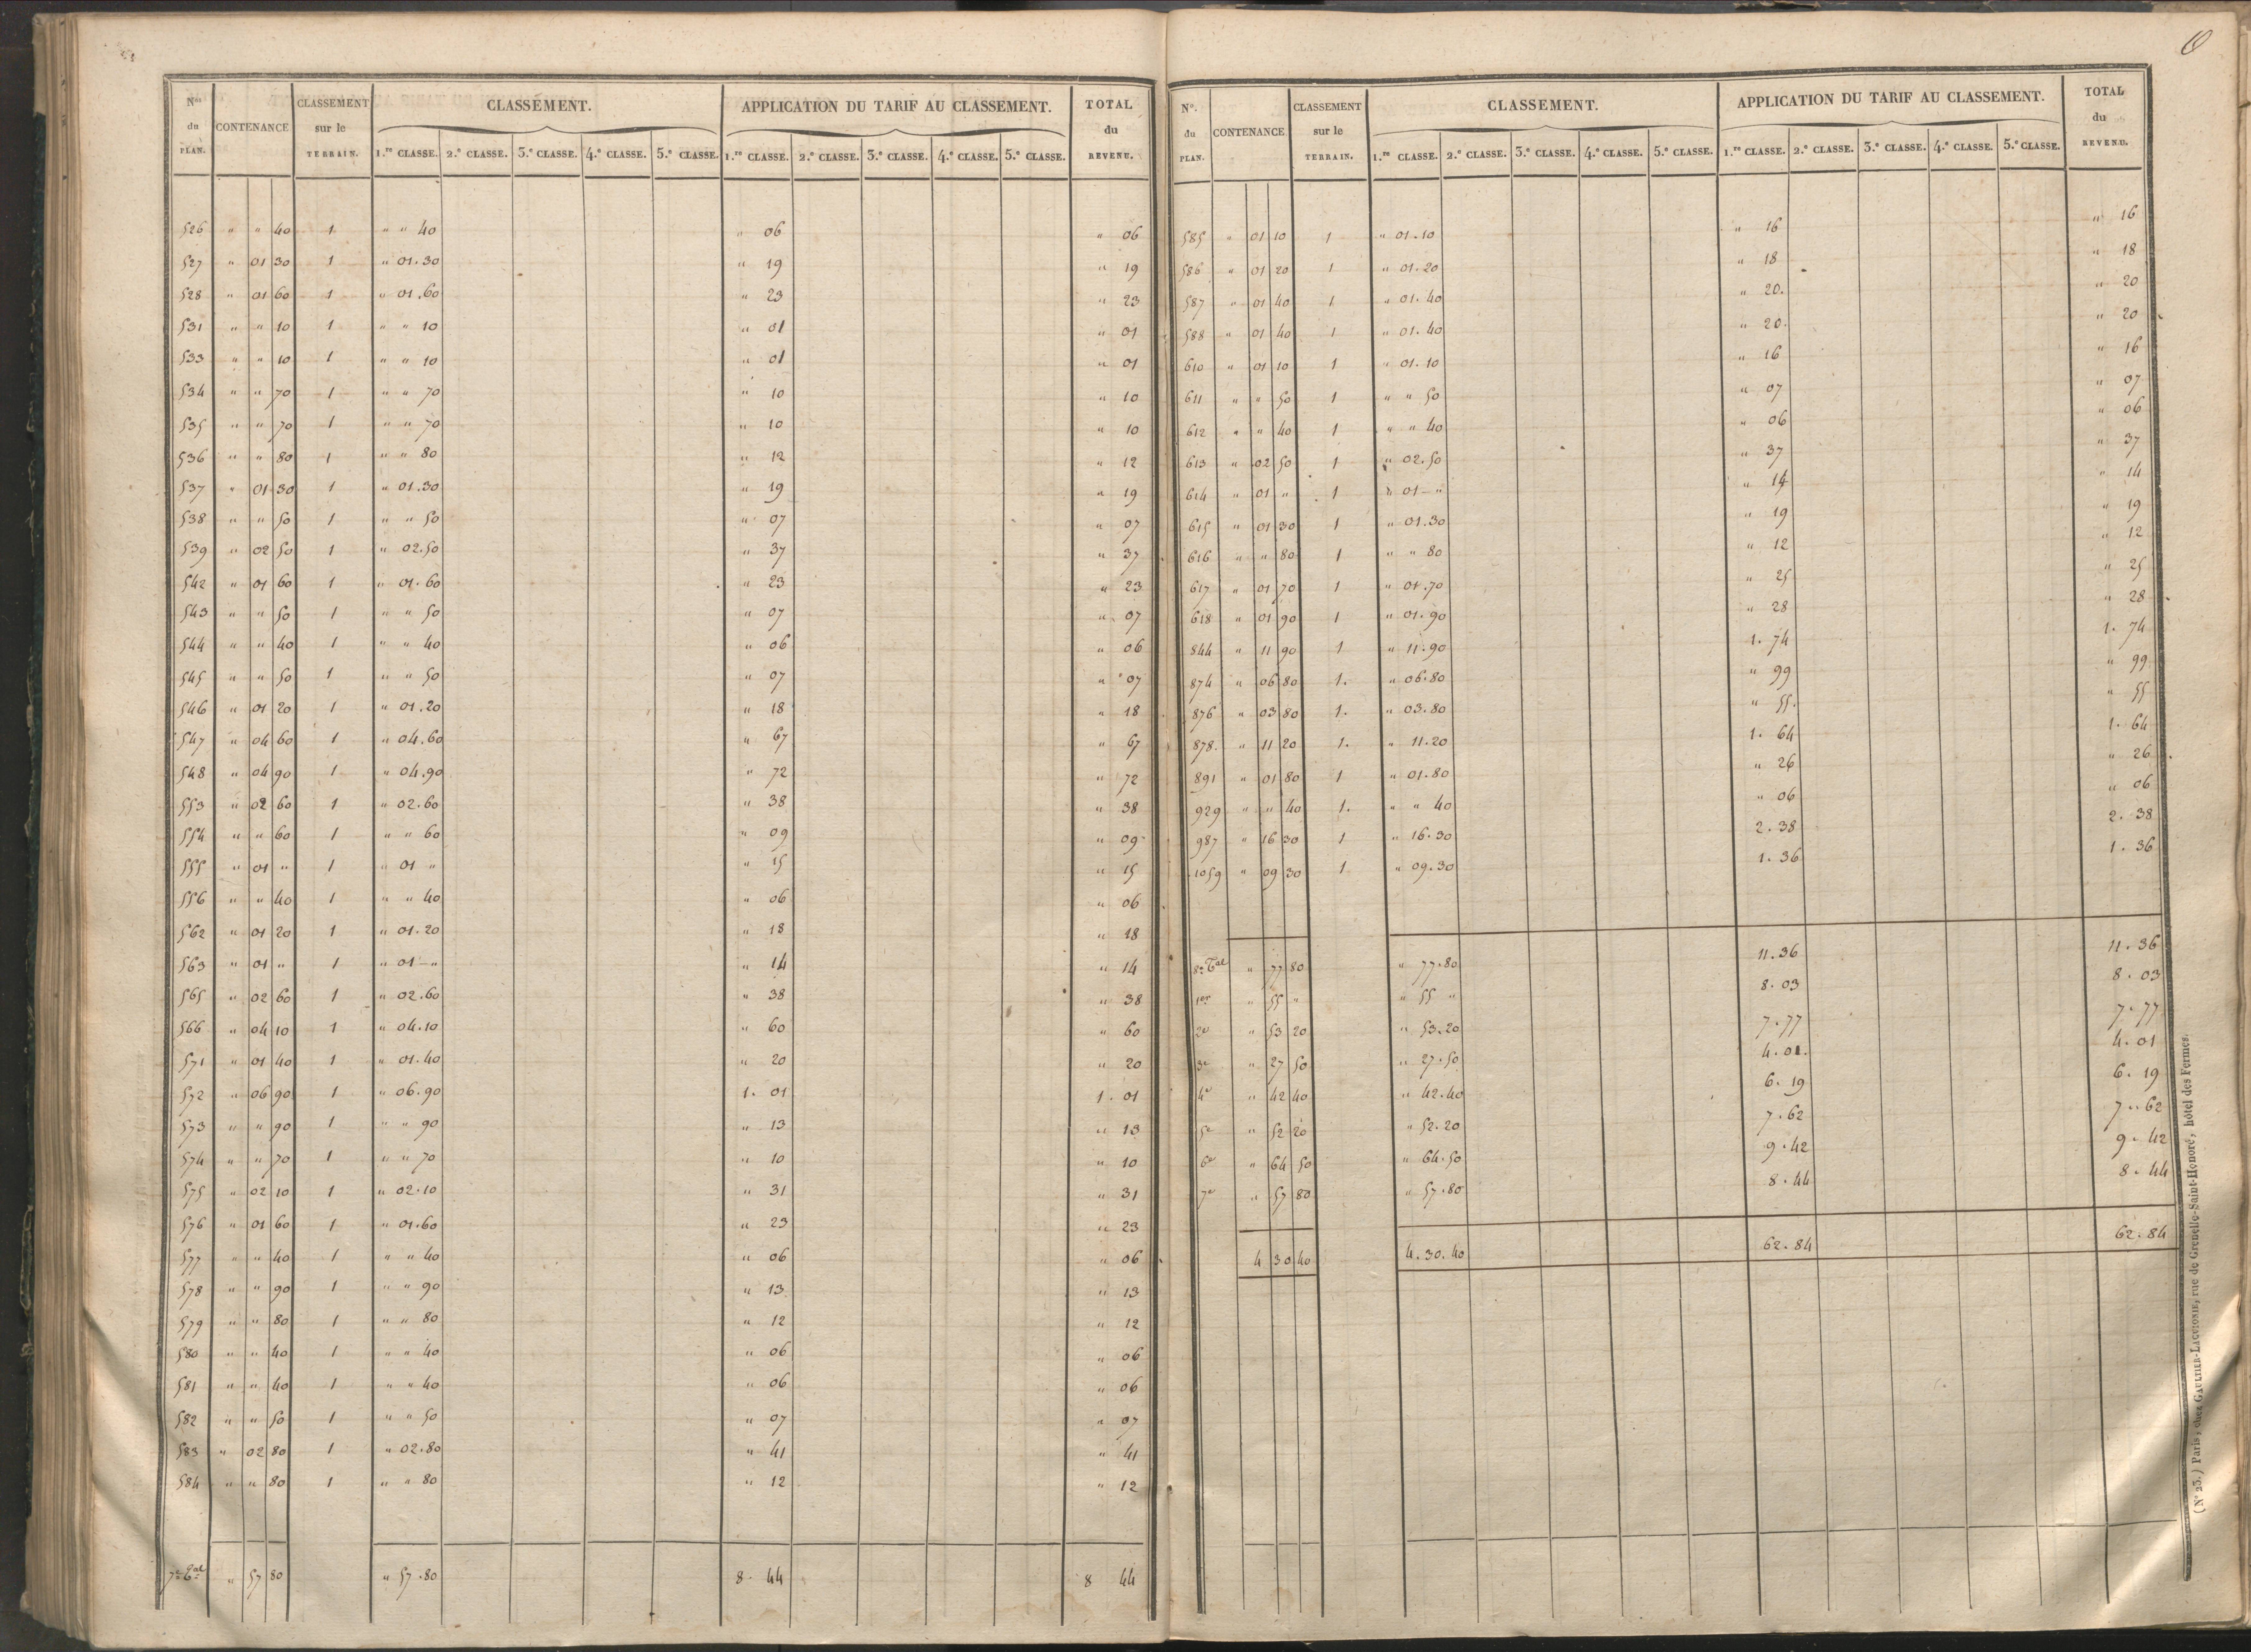 Nos du PLAN. CONTENANCE CLASSEMENT sur le TERRAIN. CLASSEMENT. APPLICATION DU TARIF AU CLASSEMENT. TOTAL du REVENU.
1.re CLASSE. 2.e CLASSE. 3.e CLASSE. 4.e CLASSE. 5.e CLASSE. 1.re CLASSE. 2.e CLASSE. 3.e CLASSE. 4.e CLASSE. 5.e CLASSE.
526 " " 40 1 " " 40 " 06 " 06
527 " 01 30 1 " 01.30 " 19 " 19
528 " 01 60 1 " 01.60 " 23 " 23
531 " " 10 1 " " 10 " 01 " 01
533 " " 10 1 " " 10 " 01 " 01
534 " " 70 1 " " 70 " 10 " 10
535 " " 70 1 " " 70 " 10 " 10
536 " " 80 1 " " 80 " 12 " 12
537 " 01 30 1 " 01.30 " 19 " 19
538 " " 50 1 " " 50 " 07 " 07
539 " 02 50 1 " 02.50 " 37 " 37
542 " 01 60 1 " 01.60 " 23 " 23
543 " " 50 1 " " 50 " 07 " 07
544 " " 40 1 " " 40 " 06 " 06
545 " " 50 1 " " 50 " 07 " 07
546 " 01 20 1 " 01.20 " 18 " 18
547 " 04 60 1 " 04.60 " 67 " 67
548 " 04 90 1 " 04.90 " 72 " 72
553 " 02 60 1 " 02.60 " 38 " 38
554 " " 60 1 " " 60 " 09 " 09
555 " 01 " 1 " 01 " " 15 " 15
556 " " 40 1 " " 40 " 06 " 06
562 " 01 20 1 " 01.20 " 18 " 18
563 " 01 " 1 " 01 - " " 14 " 14
565 " 02 60 1 " 02.60 " 38 " 38
566 " 04 10 1 " 04.10 " 60 " 60
571 " 01 40 1 " 01.40 " 20 " 20
572 " 06 90 1 " 06.90 1. 01 1. 01
573 " " 90 1 " " 90 " 13 " 13
574 " " 70 1 " " 70 " 10 " 10
575 " 02 10 1 " 02.10 " 31 " 31
576 " 01 60 1 " 01.60 " 23 " 23
577 " " 40 1 " " 40 " 06 " 06
578 " " 90 1 " " 90 " 13 " 13
579 " " 80 1 " " 80 " 12 " 12
580 " " 40 1 " " 40 " 06 " 06
581 " " 40 1 " " 40 " 06 " 06
582 " " 50 1 " " 50 " 07 " 07
583 " 02 80 1 " 02.80 " 41 " 41
584 " " 80 1 " " 80 " 12 " 12
7e Tal " 57 80 " 57.80 8. 44 8 44
No. du PLAN. CONTENANCE CLASSEMENT sur le TERRAIN. CLASSEMENT. APPLICATION DU TARIF AU CLASSEMENT. TOTAL du REVENU.
1.re CLASSE. 2.e CLASSE. 3.e CLASSE. 4.e CLASSE. 5.e CLASSE. 1.re CLASSE. 2.e CLASSE. 3.e CLASSE. 4.e CLASSE. 5.e CLASSE.
585 " 01 10 1 " 01.10 " 16 " 16
586 " 01 20 1 " 01.20 " 18 " 18
587 " 01 40 1 " 01.40 " 20. " 20
588 " 01 40 1 " 01.40 " 20. " 20
610 " 01 10 1 " 01.10 " 16 " 16
611 " " 50 1 " " 50 " 07 " 07
612 " " 40 1 " " 40 " 06 " 06
613 " 02 50 1 " 02.50 " 37 " 37
614 " 01 " 1 " 01 - " " 14 " 14
615 " 01 30 1 " 01.30 " 19 " 19
616 " " 80 1 " " 80 " 12 " 12
617 " 01 70 1 " 01.70 " 25 " 25
618 " 01 90 1 " 01.90 " 28 " 28
844 " 11 90 1 " 11.90 1. 74 1. 74
874 " 06 80 1. " 06.80 " 99 " 99
876 " 03 80 1. " 03.80 " 55. " 55
878. " 11 20 1. " 11.20 1. 64 1. 64
891 " 01 80 1 " 01.80 " 26 " 26
929 " " 40 1. " " 40 " 06 " 06
987 " 16 30 1 " 16.30 2. 38 2. 38
1059 " 09 30 1 " 09.30 1. 36 1. 36
8e Tal " 77 80 " 77.80 11.36 11.36
1er " 55 " " 55 " 8.03 8.03
2e " 53 20 " 53.20 7.77 7.77
3e " 27 50 " 27.50 4.01. 4.01
4e " 42 40 " 42.40 6.19 6.19
5e " 52 20 " 52.20 7.62 7.62
6e " 64 50 " 64.50 9.42 9.42
7e " 57 80 " 57.80 8.44 8.44
4 30 40 4.30.40 62.84 62.84
(No 23.) Paris, chez GAULTIER-LAGUIONIE, rue de Grenelle-Saint-Honoré, hôtel des Fermes.